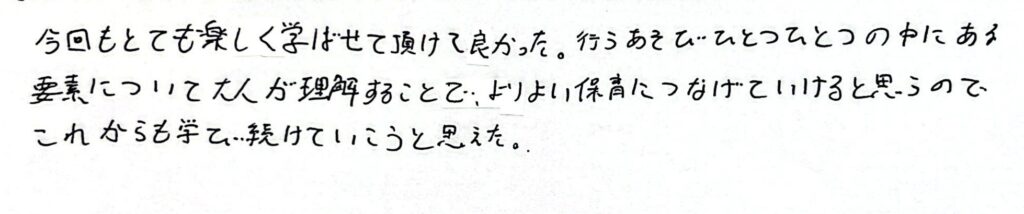 今回もとても楽しく学ばせて頂けて良かった。行うあそびひとつひとつの中にある
要素について大人が理解することで、よりよい保育につなげていけると思うので
これからも学び続けていこうと思えた。